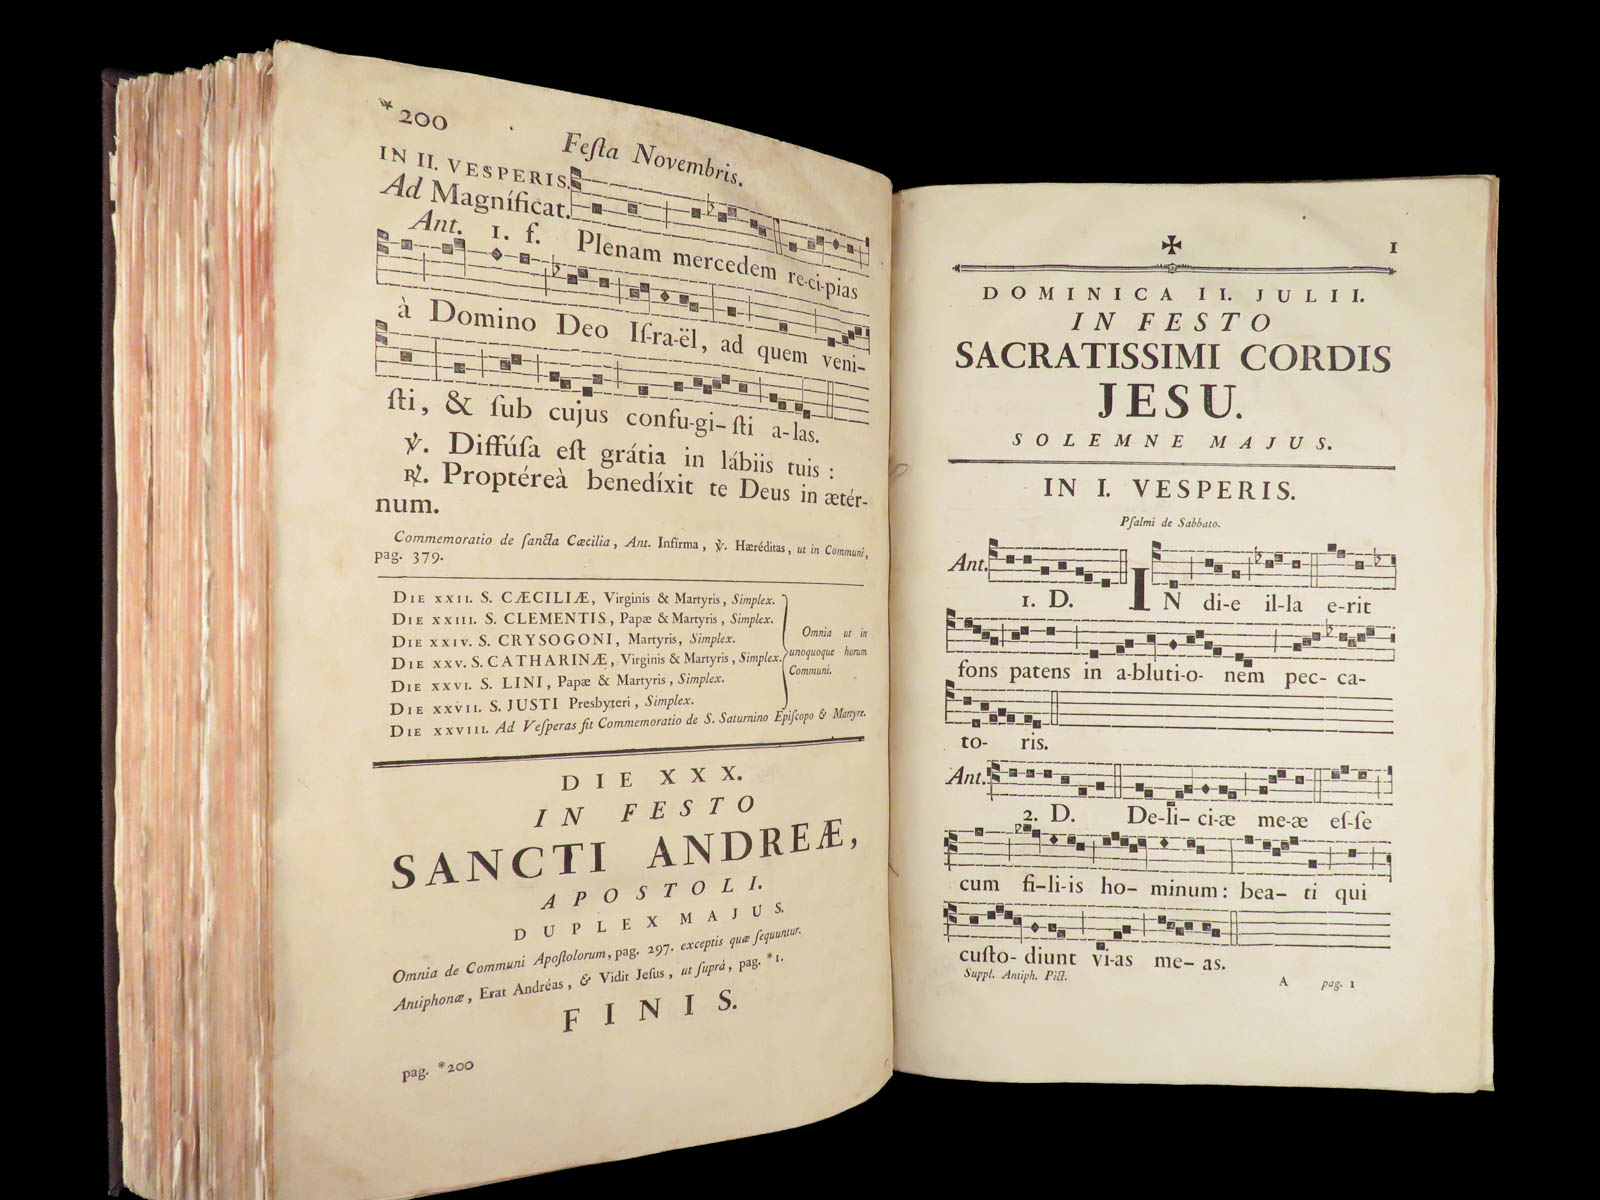 *200
Feſta Novembris.
IN II. VESPERIS.
Ad Magníficat.
Ant. 1. f. Plenam mercedem re-ci-pias
à Domino Deo Iſ-ra-ël, ad quem veni-
ſti, & ſub cujus confu-gi-ſti a-las.
℣. Diffúſa eſt grátia in lábiis tuis :
℟. Proptéreà benedíxit te Deus in ætér-
num.
Commemoratio de ſancta Cæcilia, Ant. Infirma, ℣. Hæréditas, ut in Communi,
pag. 379.
DIE XXII. S. CÆCILIÆ, Virginis & Martyris, Simplex.
DIE XXIII. S. CLEMENTIS, Papæ & Martyris, Simplex.
DIE XXIV. S. CRYSOGONI, Martyris, Simplex.
DIE XXV. S. CATHARINÆ, Virginis & Martyris, Simplex.
DIE XXVI. S. LINI, Papæ & Martyris, Simplex.
DIE XXVII. S. JUSTI Presbyteri, Simplex.
Omnia ut in
unoquoque horum
Communi.
DIE XXVIII. Ad Veſperas fit Commemoratio de S. Saturnino Epiſcopo & Martyre.
DIE XXX.
IN FESTO
SANCTI ANDREÆ,
APOSTOLI.
DUPLEX MAJUS.
Omnia de Communi Apoſtolorum, pag. 297. exceptis quæ ſequuntur.
Antiphonæ, Erat Andréas, & Vidit Jeſus, ut ſuprà, pag. *1.
FINIS.
pag. *200
1
DOMINICA II. JULII.
IN FESTO
SACRATISSIMI CORDIS
JESU.
SOLEMNE MAJUS.
IN I. VESPERIS.
Pſalmi de Sabbato.
Ant.
1. D. IN di-e il-la e-rit
fons patens in a-bluti-o- nem pec- ca-
to- ris.
Ant.
2. D. De-li- ci-æ me-æ eſ-ſe
cum fi-li-is ho- minum : bea- ti qui
cuſto- diunt vi-as me- as.
Suppl. Antiph. Pict. A pag. 1